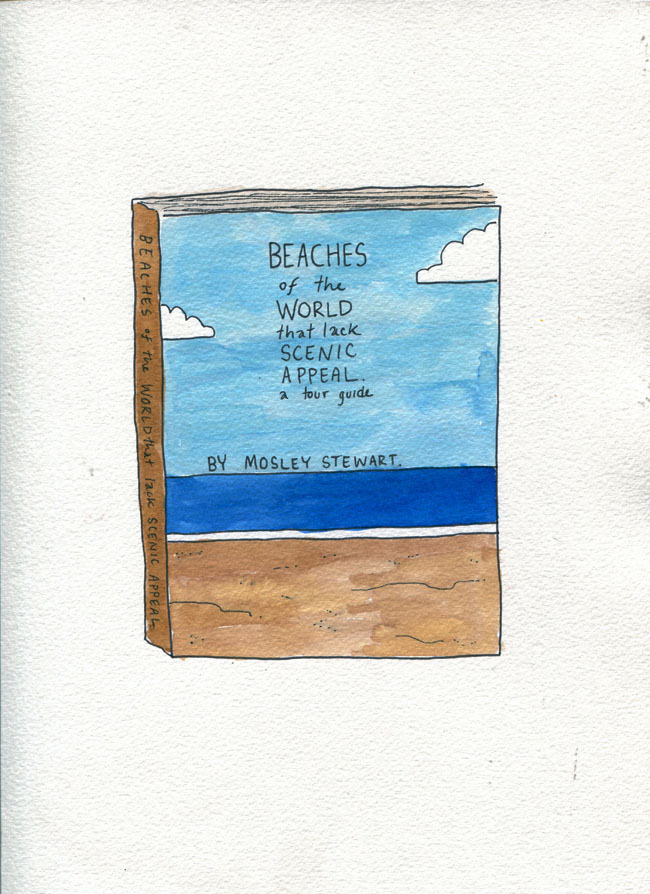 BEACHES
of the
WORLD
that lack
SCENIC
APPEAL.
a tour guide
BY MOSLEY STEWART.
BEACHES of the WORLD that lack SCENIC APPEAL